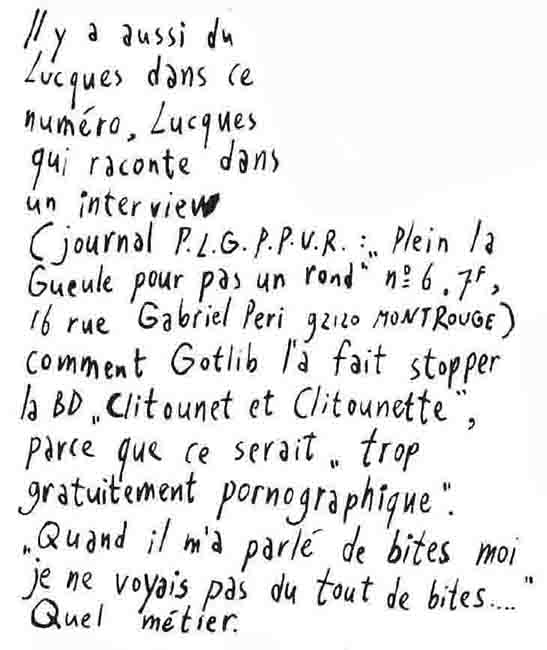 Il y a aussi du
Lucques dans ce
numéro, Lucques
qui raconte dans
un interview
(journal P.L.G.P.P.V.R. : „Plein la
Gueule pour pas un rond" nº 6, 7F,
16 rue Gabriel Peri 92120 MONTROUGE)
comment Gotlib l'a fait stopper
la BD „Clitounet et Clitounette",
parce que ce serait „trop
gratuitement pornographique".
„Quand il m'a parlé de bites moi
je ne voyais pas du tout de bites...."
Quel métier.